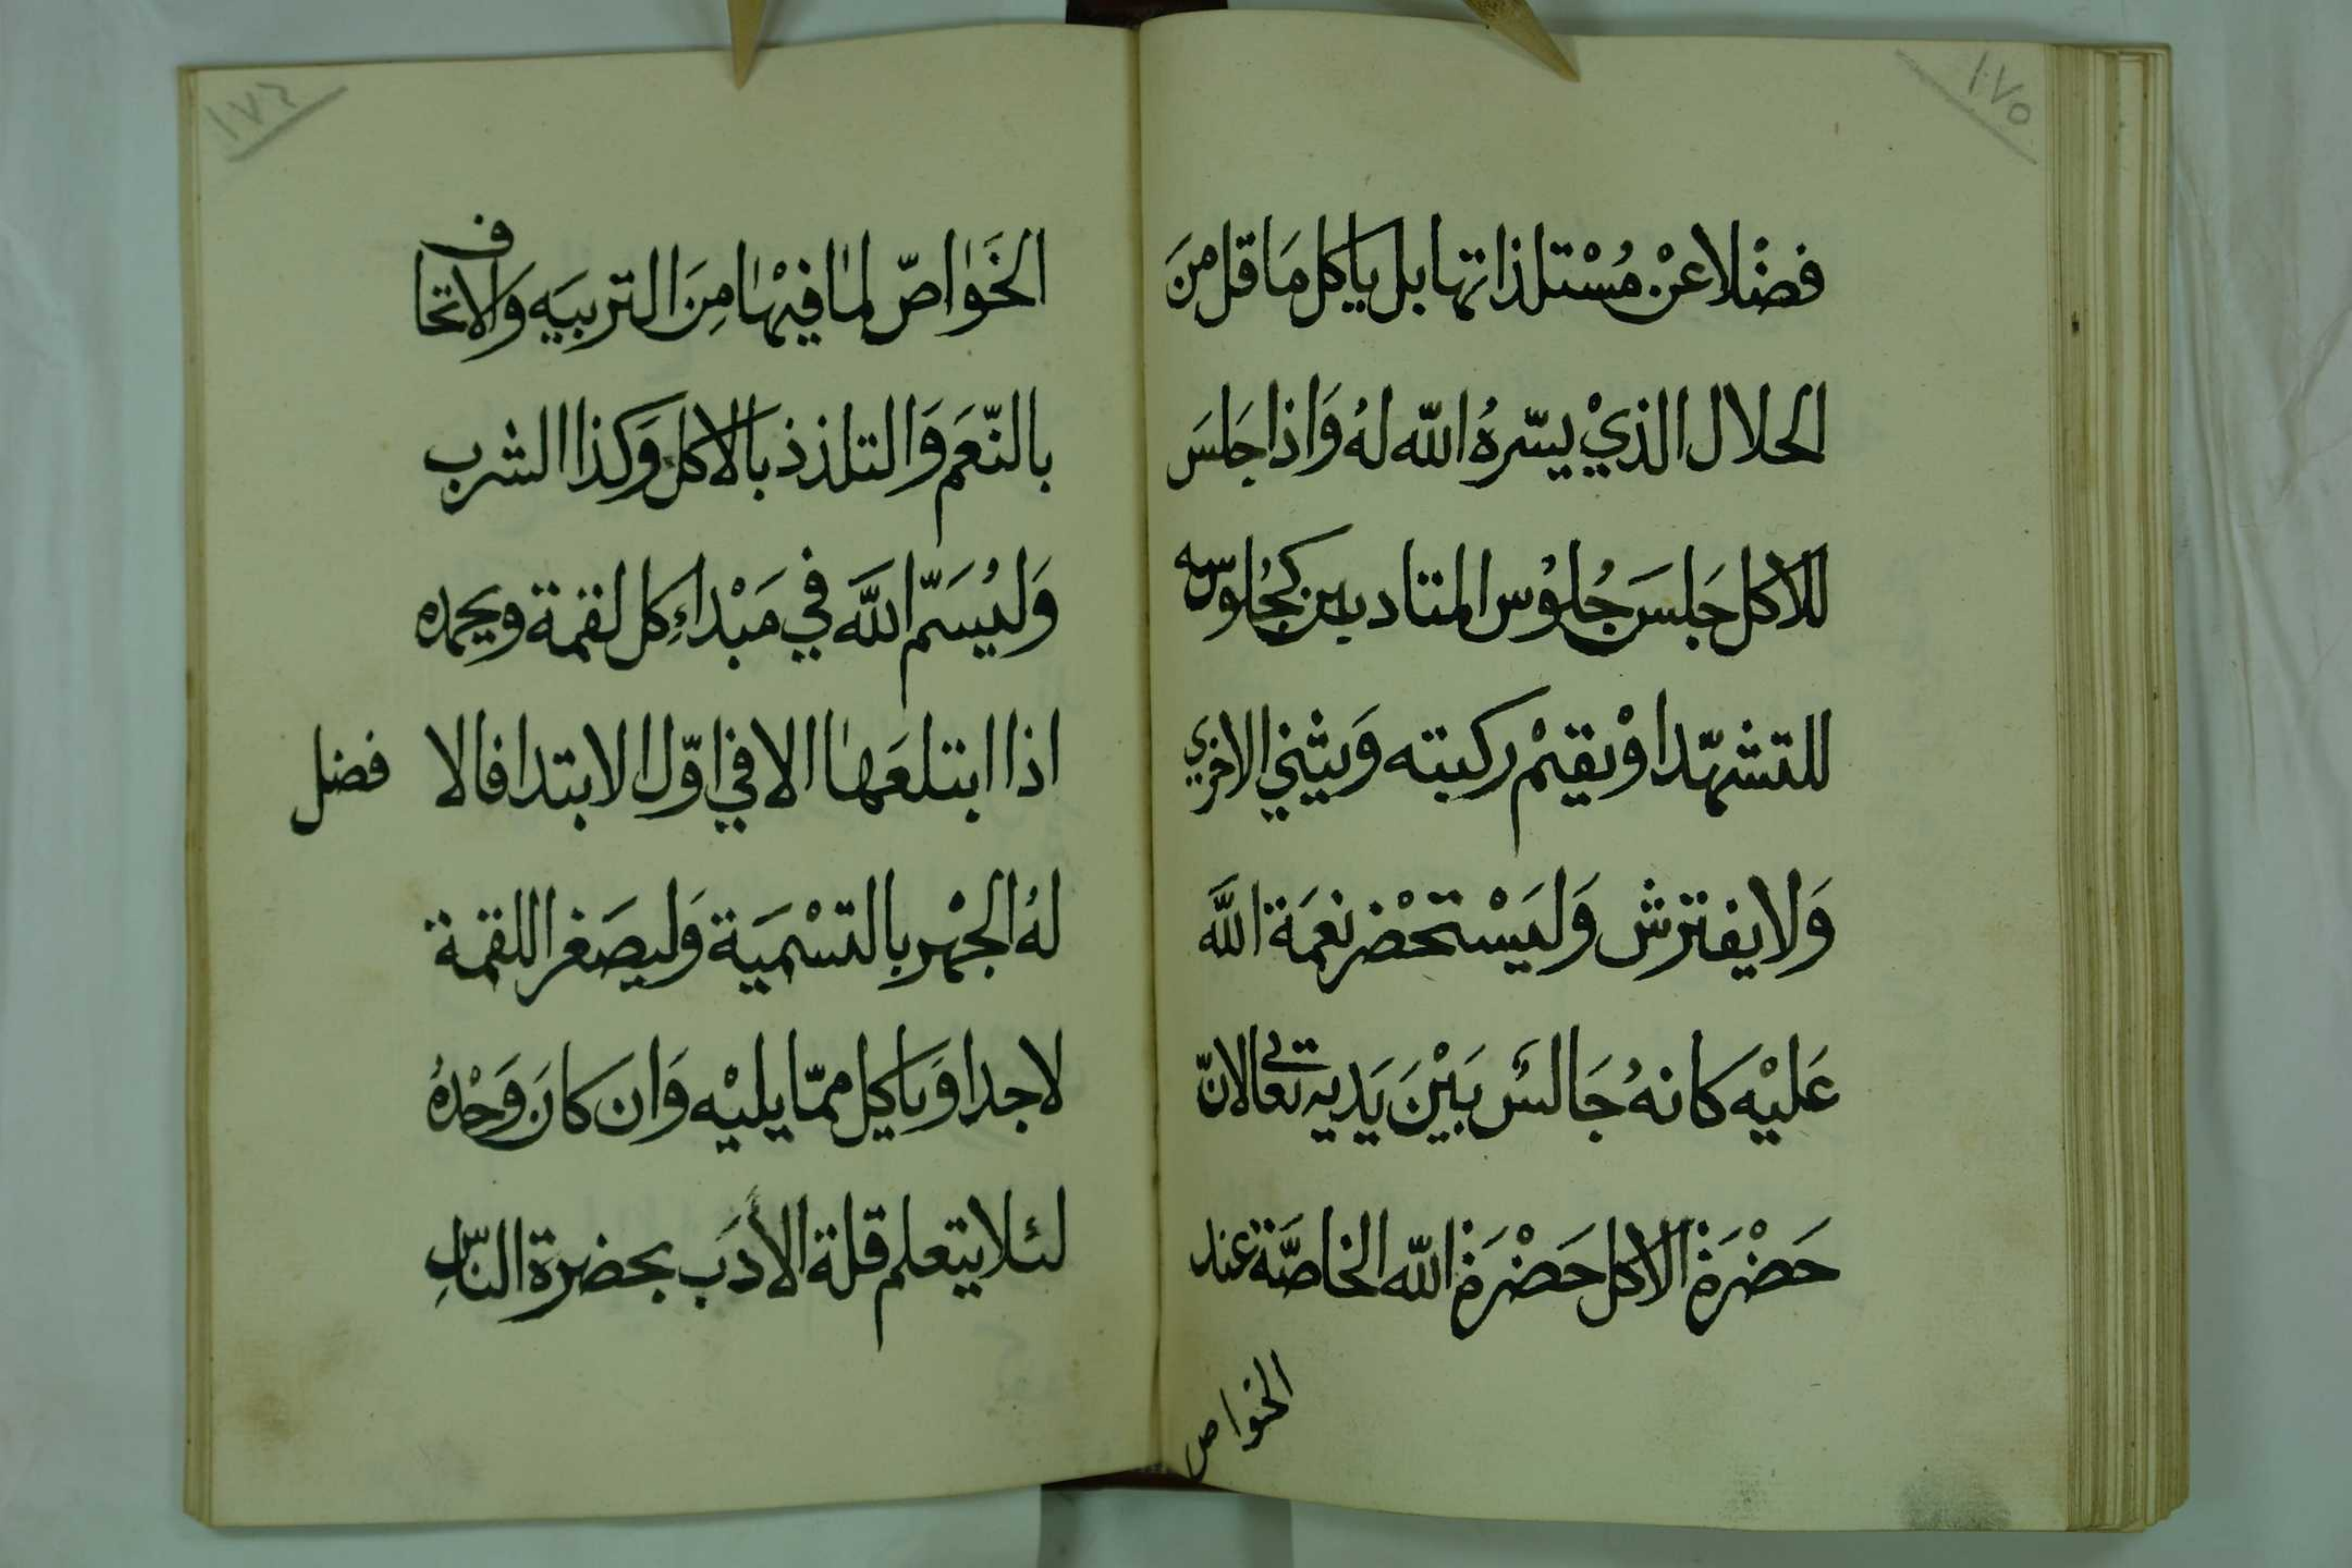 ١٧٥
فضْلا عنْ مُسْتلذاتها بل ياكل مَا قل منَ
الحلال الذيْ يسّرهُ الله لهُ وَاذا جَلسَ
للاكل جَلسَ جُلوْس المتادبين كجُلوسه
للتشهّد اوْ يقيمْ ركبته وَيثني الاخري
وَلا يفترش وَليَسْتحْضر نعمَة اللَّه
عَليْه كانهُ جَالسٌ بَيْنَ يَديه تعالى لانّ
حَضْرَة الاكل حَضْرَة الله الخاصَّة عند
الخواص
١٧٦
الخَواصّ لما فيْها مِنَ التربيَه وَالاتحاف
بالنّعَم وَالتلذذ بَالاكل وَكذا الشرب
وَليُسَمّ اللَّه في مَبْداءِ كل لقمة ويحمده
اذا ابتلعَها الا في اوّل الابتدا فالا فضل
لهُ الجْهر بالتسْميَة وَليصَغر اللقمة
لا جدا وَياكل ممّا يليْه وَان كانَ وَحْدهُ
لئلا يتعلم قلة الأدَب بحضرة النّاسِ